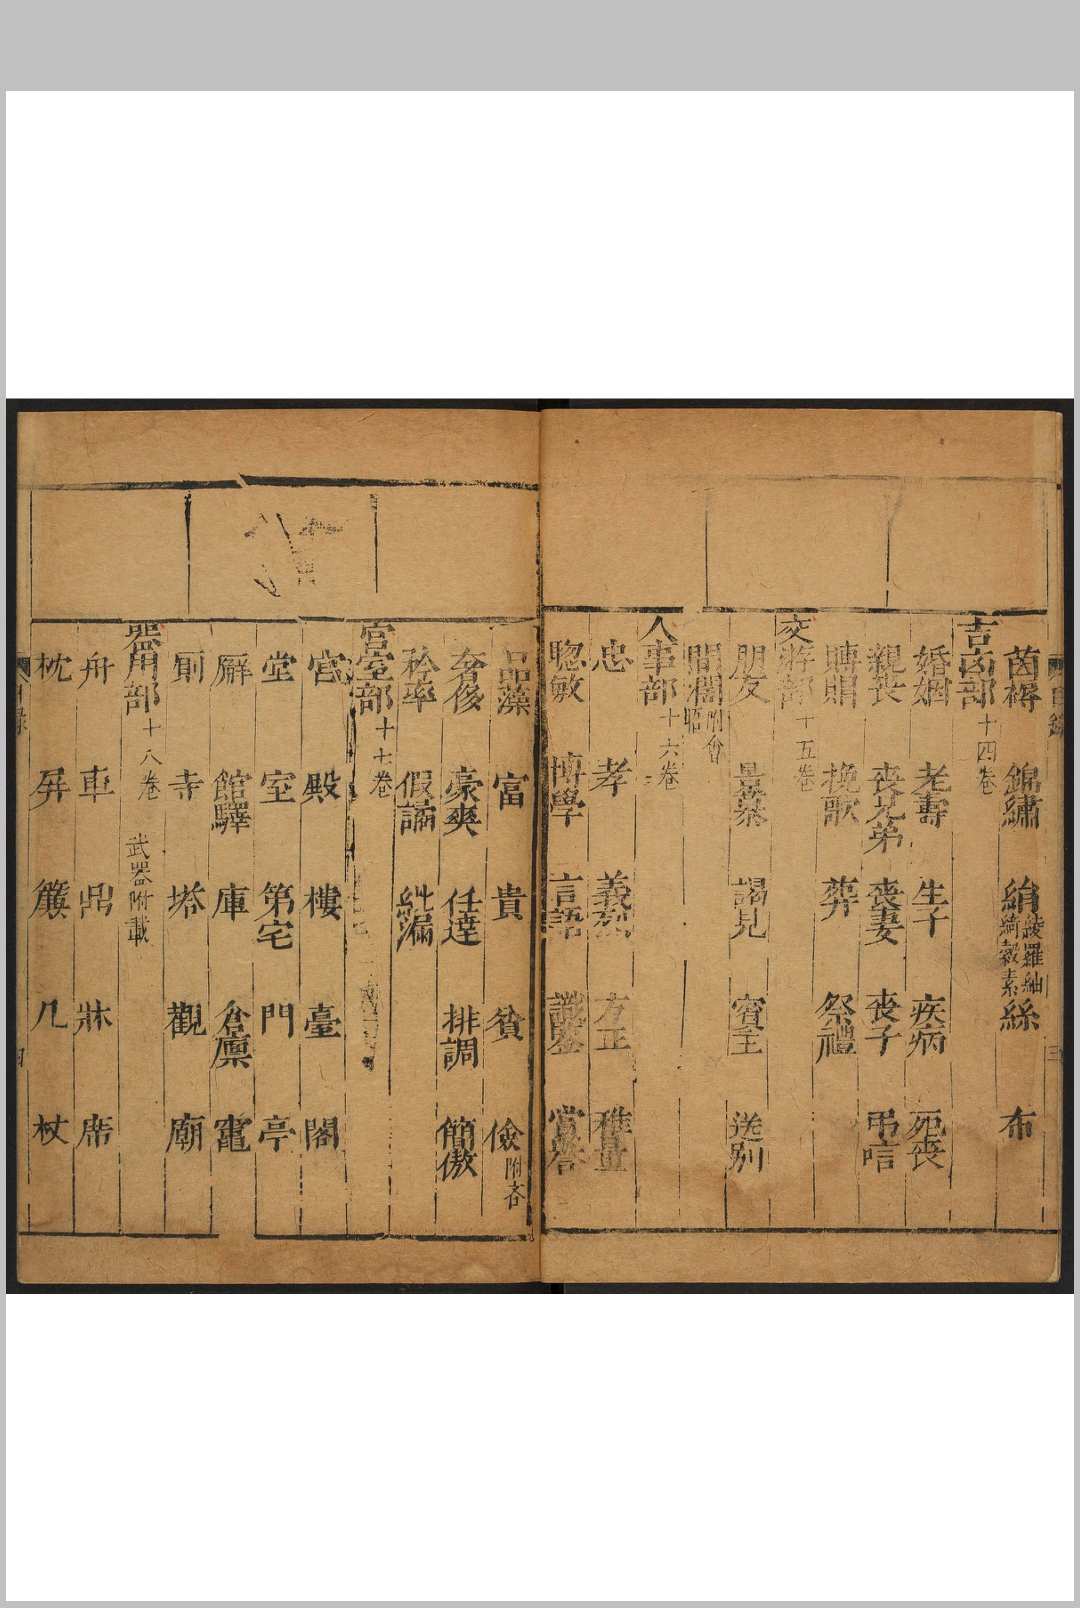 目錄 三
茵褥 錦繡 絹綾羅紬綺縠素 絲 布
吉凶部十四卷
婚姻 老壽 生子 疾病 死喪
親喪 喪兄弟 喪妻 喪子 弔唁
賻賵 挽歌 葬 祭禮
交游部十五卷
朋友 謁見 賓主 送別
間濶附會晤
人事部十六卷
忠 孝 義烈 方正 雅量
聰敏 博學 言語 識鑒 賞譽
品藻 富 貴 貧 儉附吝
奢侈 豪爽 任達 排調 簡傲
矜率 假譎 紕漏
宮室部十七卷
宮 殿 樓 臺 閣
堂 室 第宅 門 亭
廨 館驛 庫 倉廩 竈
廁 寺 塔 觀 廟
器用部十八卷 武器附載
舟 車 鼎 牀 席
枕 屏 簾 几 杖
目錄 四